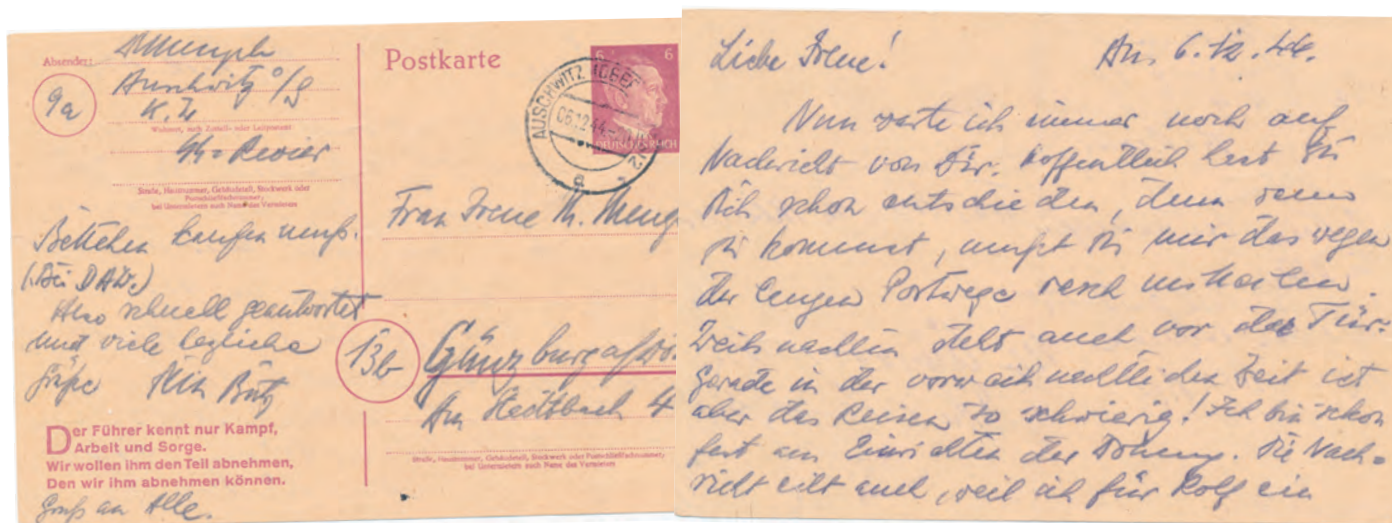 Absender:
9a
Auschwitz O/S
K. L.
Wohnort, auch Zustell- oder Leitpostamt
Revier
Straße, Hausnummer, Gebäudeteil, Stockwerk oder
Postschließfachnummer;
bei Untermietern auch Name des Vermieters
Bettchen kaufen muß.
(Bei DAW.)
Also schnell geantwortet
und viele herzliche
Grüße Dein
Der Führer kennt nur Kampf,
Arbeit und Sorge.
Wir wollen ihm den Teil abnehmen,
Den wir ihm abnehmen können.
Gruß an Alle.
Postkarte
6 6
DEUTSCHES REICH
AUSCHWITZ
06.12.44
Frau Irene M. Meng
13b
Günzburg a/Do
Am Stadtbach 4
Straße, Hausnummer, Gebäudeteil, Stockwerk oder Postschließfachnummer;
bei Untermietern auch Name des Vermieters
Liebe Irene!
Au. 6.12.44.
Nun warte ich immer noch auf
Nachricht von Dir. Hoffentlich hast Du
Dich schon entschieden, denn wenn
Du kommst, mußt Du mir das wegen
der langen Postwege rasch mitteilen.
Weihnachten steht auch vor der Tür.
Gerade in der vorweihnachtlichen Zeit ist
aber das Reisen so schwierig! Ich bin schon
fest am Einrichten der Wohnung. Die Nach-
richt eilt auch, weil ich für Rolf ein